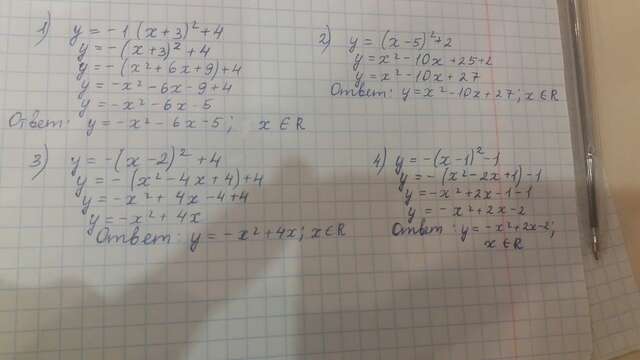 1) y = -1 (x+3)² + 4
y = -(x+3)² + 4
y = -(x² + 6x + 9) + 4
y = -x² - 6x - 9 + 4
y = -x² - 6x - 5
Ответ: y = -x² - 6x - 5; x ∈ R
2) y = (x-5)² + 2
y = x² - 10x + 25 + 2
y = x² - 10x + 27
Ответ: y = x² - 10x + 27; x ∈ R
3) y = -(x-2)² + 4
y = -(x² - 4x + 4) + 4
y = -x² + 4x - 4 + 4
y = -x² + 4x
Ответ: y = -x² + 4x; x ∈ R
4) y = -(x-1)² - 1
y = -(x² - 2x + 1) - 1
y = -x² + 2x - 1 - 1
y = -x² + 2x - 2
Ответ: y = -x² + 2x - 2;
x ∈ R